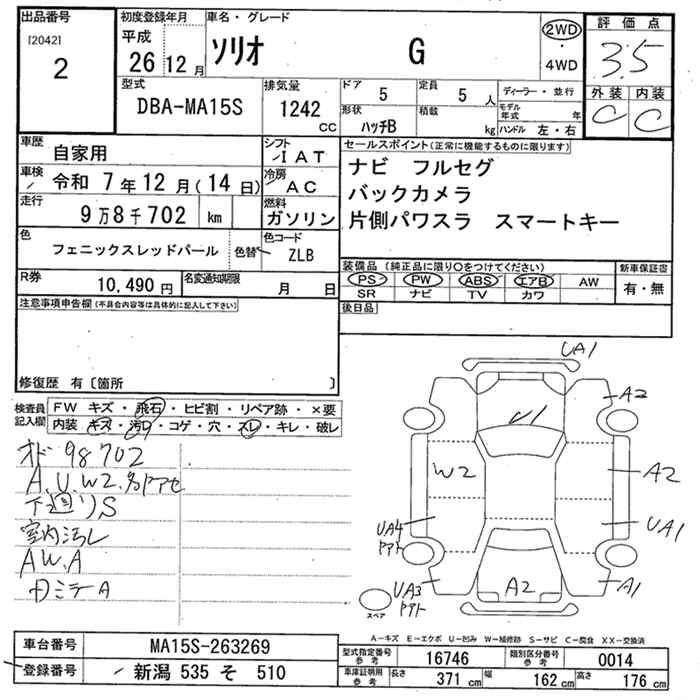 出品番号
[2042]
2
初度登録年月
平成
26年12月
車名・グレード
ソリオ G
2WD
・
4WD
評価点
3.5
外装 内装
C C
型式
DBA-MA15S
排気量
1242
CC
ドア 5
定員 5人
形状 ハッチB
積載 kg
ディーラー・並行
モデル年式 年
ハンドル 左・右
車歴 自家用
シフト IAT
車検 令和 7年12月(14日)
冷房 AC
走行 9万8千702 km
燃料 ガソリン
色 フェニックスレッドパール
色替
色コード ZLB
R券 10,490円
名変通知期限 月 日
セールスポイント(正常に機能するものに限ります)
ナビ フルセグ
バックカメラ
片側パワスラ スマートキー
装備品(純正品に限り〇をつけてください)
PS PW ABS エアB AW
SR ナビ TV カワ
新車保証書
有・無
後日品
注意事項申告欄(不具合内容等は具体的に記入して下さい)
修復歴 有〔箇所 〕
検査員記入欄
FW キズ・飛石・ヒビ割・リペア跡・×要
内装 キズ・汚レ・コゲ・穴・スレ・キレ・破レ
オド 98702
A.U.W2.
下廻リS
室内汚レ
AW.A
カミテA
UA1
A2
U1
W2
A2
UA4
UA1
UA3
A2
A1
スペア
A-キズ E-エクボ U-凹み W-補修跡 S-サビ C-腐食 XX-交換済
車台番号 MA15S-263269
登録番号 新潟 535 そ 510
型式指定番号 参考 16746
類別区分番号 参考 0014
車庫証明用 参考
長さ 371 cm
幅 162 cm
高さ 176 cm